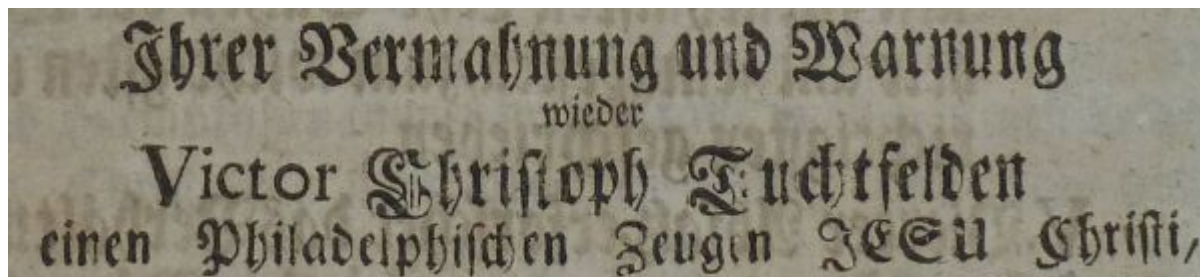 Ihrer Vermahnung und Warnung
wieder
Victor Christoph Tuchtfelden
einen Philadelphischen Zeugen JESU Christi,